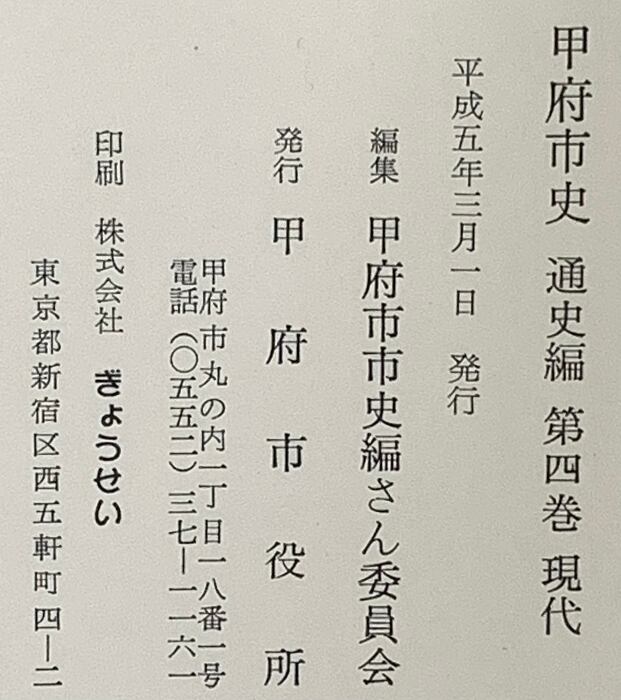 甲府市史 通史編 第四巻 現代
平成五年三月一日 発行
編集 甲府市市史編さん委員会
発行 甲府市役所
甲府市丸の内一丁目一八番一号
電話(〇五五二)三七―一一六一
印刷 株式会社 ぎょうせい
東京都新宿区西五軒町四―二